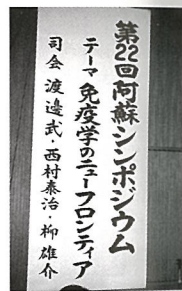 第22回阿蘇シンポジウム
テーマ 免疫学のニューフロンティア
司会 渡邊武・西村泰治・柳雄介